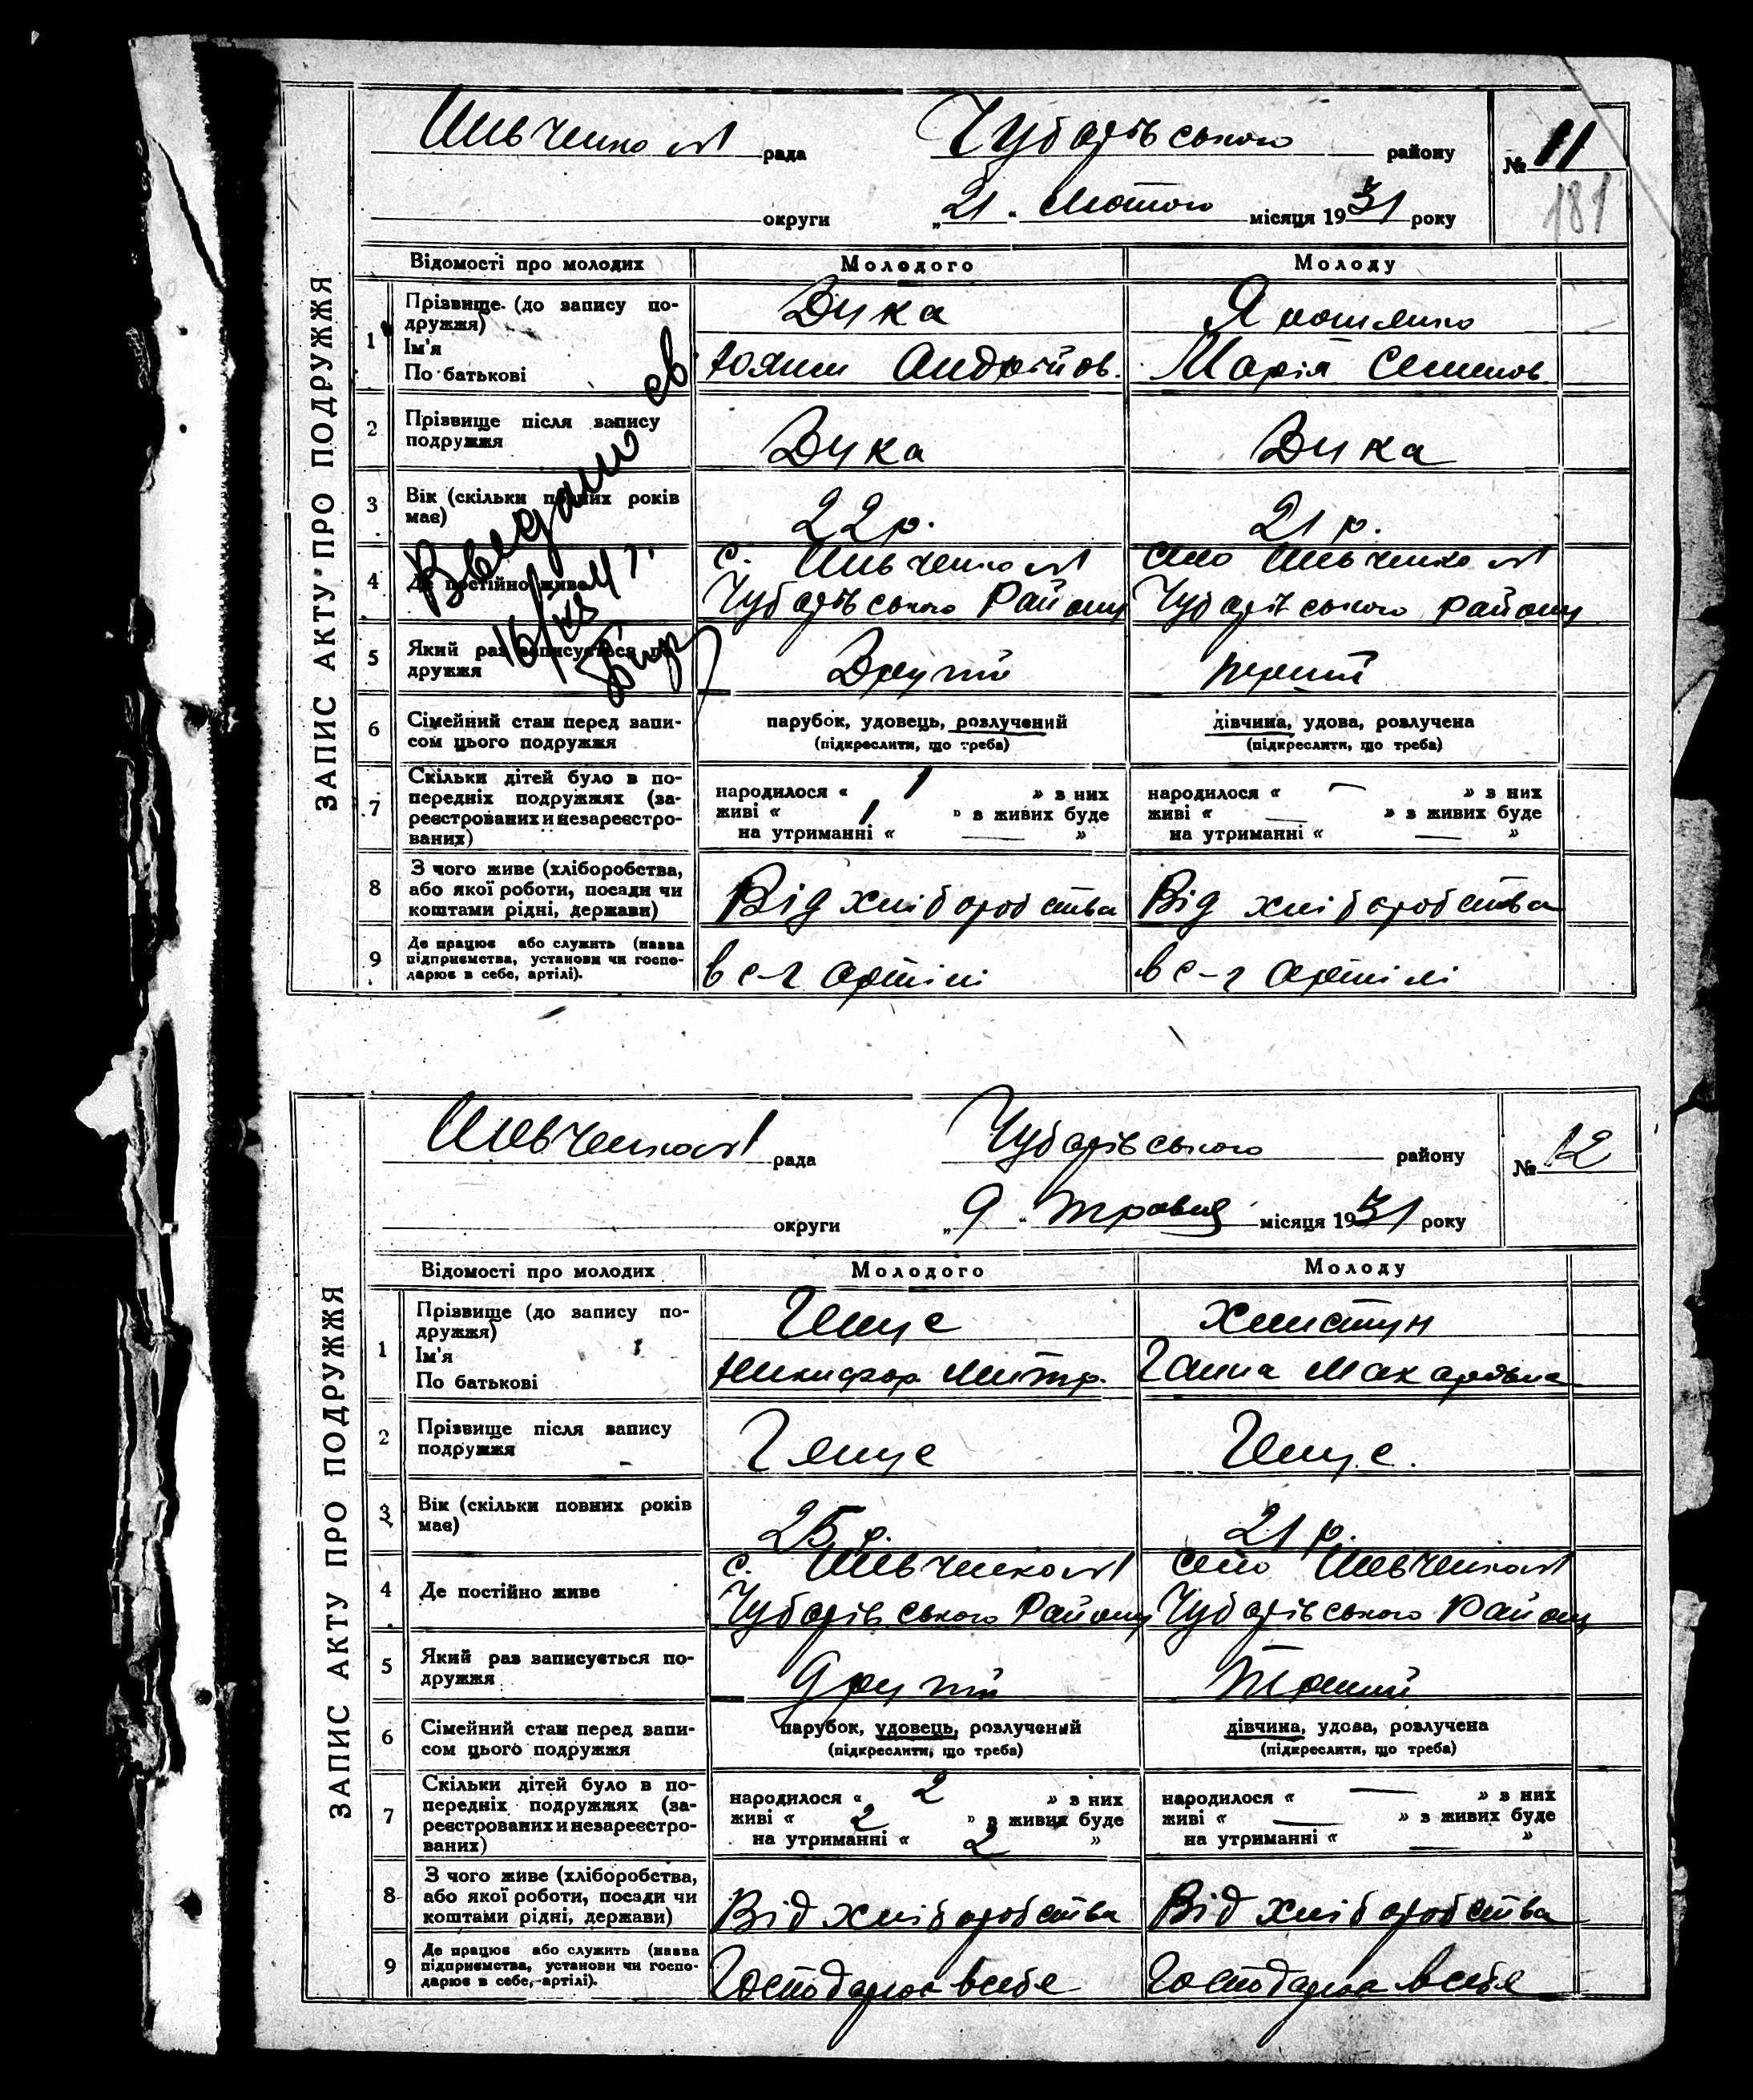 ЗАПИС АКТУ ПРО ПОДРУЖЖЯ
рада Чубарівського району № 11
округи „21“ Лютого місяця 1931 року 181
Відомості про молодих Молодого Молоду
1 Прізвище (до запису по-
дружжя)
Ім'я
По батькові
Дика
Андрійов. Марія Семенов.
2 Прізвище після запису
подружжя
Дика Дика
3 Вік (скільки повних років
має)
22 р. 21 р.
4 Де постійно живе
с. село
Чубарівського Району Чубарівського Району
Выдано св
16/
5 Який раз записується по-
дружжя
Другий перший
6 Сімейний стан перед запи-
сом цього подружжя
парубок, удовець, розлучений дівчина, удова, розлучена
(підкреслити, що треба) (підкреслити, що треба)
7 Скільки дітей було в по-
передніх подружжях (за-
реєстрованих и незареєстро-
ваних)
народилося « 1 » з них народилося « — » з них
живі « 1 » з живих буде живі « — » з живих буде
на утриманні « — » на утриманні « — »
8 З чого живе (хліборобства,
або якої роботи, посади чи
коштами рідні, держави)
Від хліборобства Від хліборобства
9 Де працює або служить (назва
підприємства, установи чи госпо-
дарює в себе, артілі).
в с-г артілі в с-г артілі
ЗАПИС АКТУ ПРО ПОДРУЖЖЯ
рада Чубарівського району № 12
округи „9“ травня місяця 1931 року
Відомості про молодих Молодого Молоду
1 Прізвище (до запису по-
дружжя)
Ім'я
По батькові
Хлистун
Никифор Митр. Ганна Макарівна
2 Прізвище після запису
подружжя
3 Вік (скільки повних років
має)
25 р. 21 р.
4 Де постійно живе
с. село
Чубарівського Району Чубарівського Району
5 Який раз записується по-
дружжя
Другий
6 Сімейний стан перед запи-
сом цього подружжя
парубок, удовець, розлучений дівчина, удова, розлучена
(підкреслити, що треба) (підкреслити, що треба)
7 Скільки дітей було в по-
передніх подружжях (за-
реєстрованих и незареєстро-
ваних)
народилося « 2 » з них народилося « — » з них
живі « 2 » з живих буде живі « — » з живих буде
на утриманні « 2 » на утриманні « — »
8 З чого живе (хліборобства,
або якої роботи, посади чи
коштами рідні, держави)
Від хліборобства Від хліборобства
9 Де працює або служить (назва
підприємства, установи чи госпо-
дарює в себе, артілі).
Господарює в себе Господарює в себе